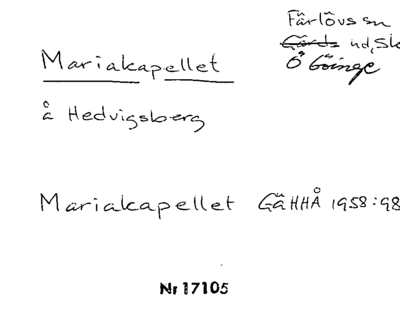 Färlövs sn
Mariakapellet
Gärds hd, Sk
Ö Göinge
å Hedvigsberg
Mariakapellet GäHHÅ 1958:98
Nr 17105